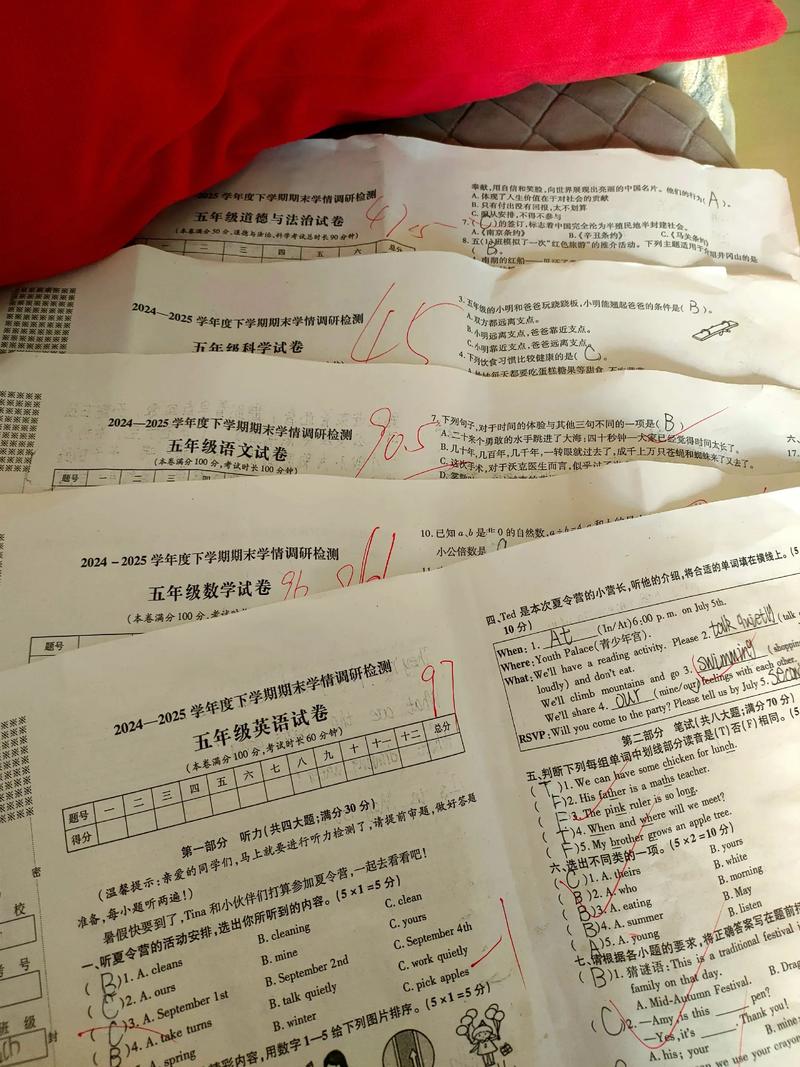 2025 学年度下学期期末学情调研检测
五年级道德与法治试卷
47.5
(本卷满分50分,道德与法治、科学考试总时长90分钟)
一 二 三 四 五 六 总分
奉献,用自信和笑脸,向世界展现出亮丽的中国名片。他们的行为( A )。
A.体现了人生价值在于对社会的贡献
B.只有付出没有回报,太不划算
C.服从安排,不得不参与
7.( C )的签订,标志着中国完全沦为半殖民地半封建社会。
A.《南京条约》 B.《辛丑条约》 C.《马关条约》
8.五(1)班模拟了一次“红色旅游”的推介活动。下列主题适用于介绍井冈山的是
( B )。
2024—2025 学年度下学期期末学情调研检测
五年级科学试卷
45
3.五年级的小明和爸爸玩跷跷板,小明能翘起爸爸的条件是( B )。
A.双方都远离支点。
B.小明远离支点,爸爸靠近支点。
C.小明靠近支点,爸爸远离支点。
4.下列饮食习惯比较健康的是( C )。
2024—2025 学年度下学期期末学情调研检测
五年级语文试卷
90.5
(本卷满分100分,考试时长100分钟)
题号 一 二 三 四
7.下列句子,对于时间的体验与其他三句不同的一项是( B )
A.二十来个勇敢的水手跳进了大海:四十秒钟—大家已经觉得时间太长了。
B.几十年,几百年,几千年,一转眼就过去了,成千上万只苍蝇和蜘蛛来了又去了。
C.这次手术,对于沃克医生而言,
六、
17.
2024-2025 学年度下学期期末学情调研检测
五年级数学试卷
96
(本卷满分100分,考试时
题号
10.已知 a、b 是非0的自然数,
小公倍数是
2024—2025 学年度下学期期末学情调研检测
五年级英语试卷
97
(本卷满分100分,考试时长60分钟)
题号 一 二 三 四 五 六 七 八 九 十 十一 十二 总分
得分
第一部分 听力(共四大题;满分30分)
(温馨提示:亲爱的同学们,马上就要进行听力检测了,请提前审题,做好答题
准备,每小题听两遍!)
暑假快要到了,Tina 和小伙伴们打算参加夏令营,一起去看看吧!
一、听夏令营的活动安排,选出你所听到的内容。(5×1=5分)
( B )1. A. cleans B. cleaning C. clean
( C )2. A. ours B. mine C. yours
( C )3. A. September 1st B. September 2nd C. September 4th
( B )4. A. take turns B. talk quietly C. work quietly
A. spring B. winter C. pick apples
精彩内容,用数字1—5给下列图片排序。(5×1=5分)
密
校
考号
班级
封
四、Ted 是本次夏令营的小营长,听他的介绍,将合适的单词填在横线上。(5
10分)
When: 1. At (In/At)6:00 p. m. on July 5th.
Where: Youth Palace(青少年宫).
What: We'll have a reading activity. Please 2. talk quietly (talk
loudly) and don't eat.
We'll climb mountains and go 3. swimming (shopping
We'll share 4. our (mine/our)feelings with each other.
RSVP: Will you come to the party? Please tell us by July 5.
第二部分 笔试(共八大题;满分70分)
五、判断下列每组单词中划线部分读音是(T)否(F)相同。(5
( T )1. We can have some chicken for lunch.
( F )2. His father is a maths teacher.
( F )3. The pink ruler is so long.
( T )4. When and where will we meet?
( F )5. My brother grows an apple tree.
六、选出不同类的一项。(5×2=10分)
( C )1. A. theirs B. yours
( B )2. A. who B. white
( B )3. A. eating B. morning
( B )4. A. summer B. May
( A )5. A. young B. listen
七、请根据各小题的要求,将正确答案写在题前
( B )1. 猜谜语: This is a traditional festival
family on that day.
A. Mid-Autumn Festival. B. Drag
( C )2. —Amy, is this ____ pen?
—Yes, it's ____. Thank you!
A. his; your B. mine;
we use your crayon